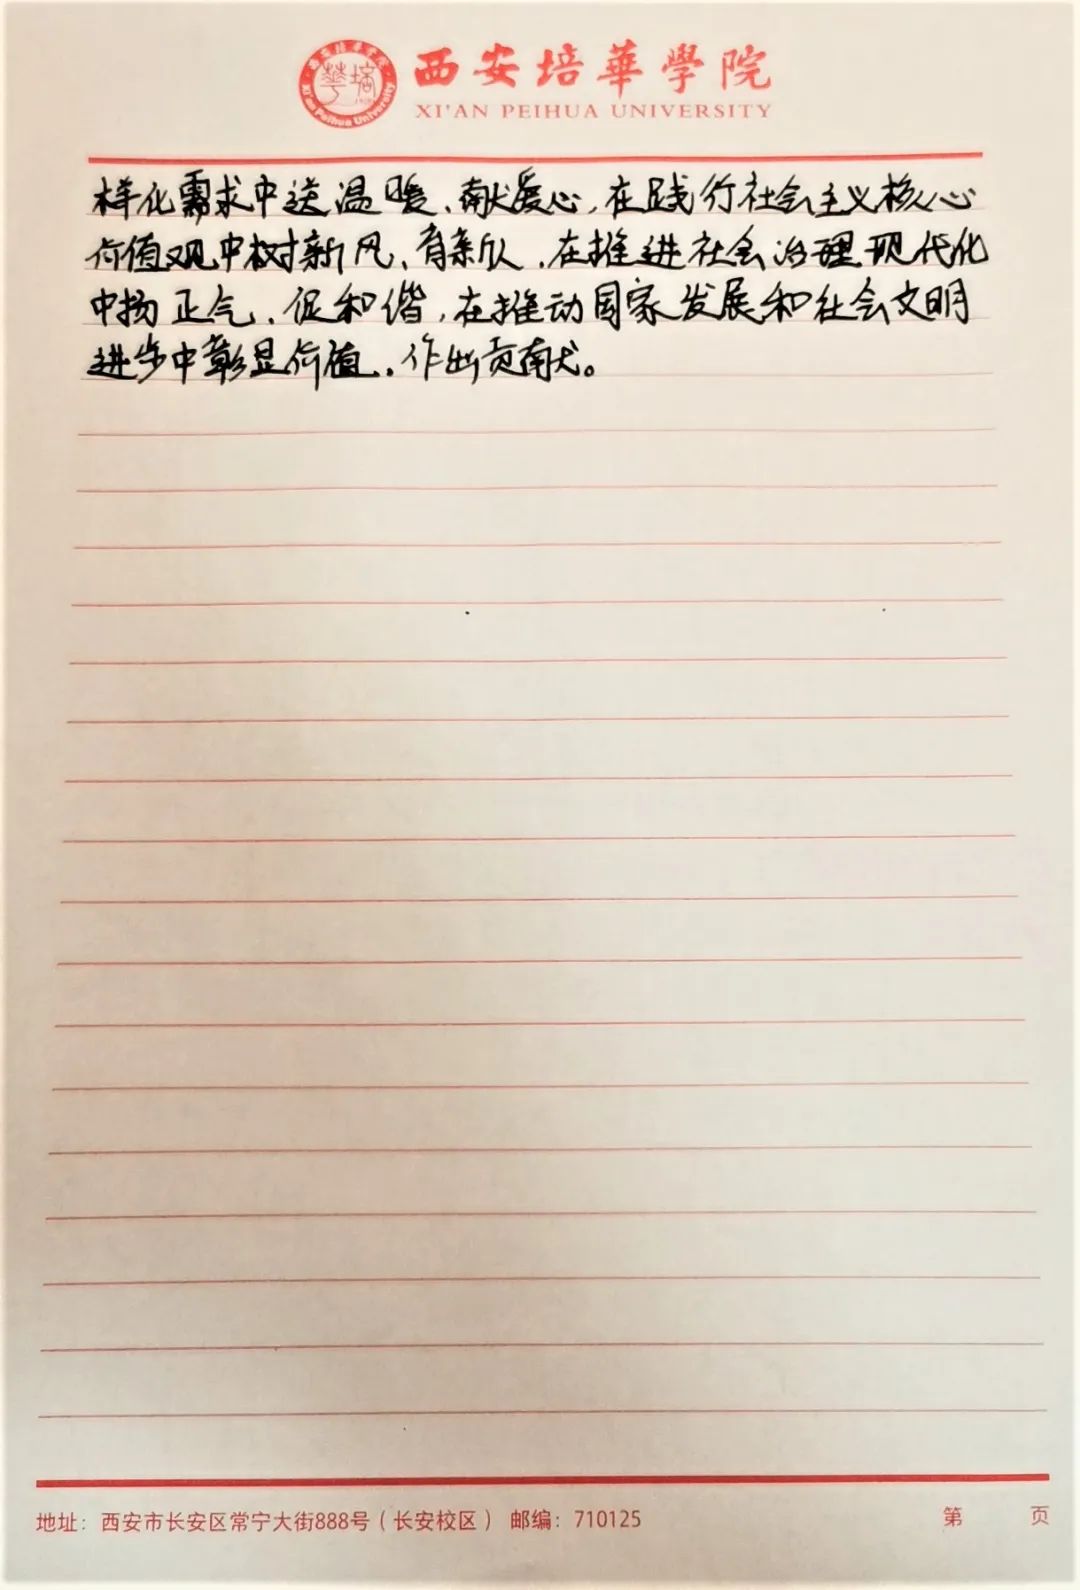 西安培華學院
XI'AN PEIHUA UNIVERSITY
样化需求中送温暖、献爱心,在践行社会主义核心
价值观中树新风、育新人,在推进社会治理现代化
中扬正气、促和谐,在推动国家发展和社会文明
进步中彰显价值、作出贡献。
地址：西安市长安区常宁大街888号（长安校区） 邮编：710125
第 页